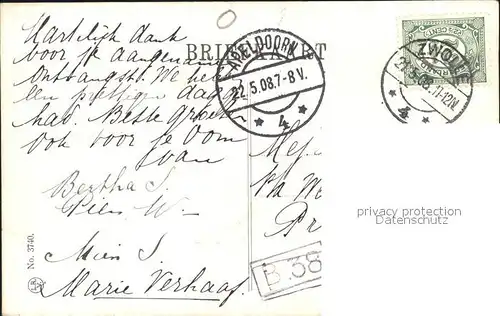 Hartelijk dank
voor je aangename
ontvangst. We hebben
een prettige dag ge-
had. Beste groeten
ook voor je Oom
van
Bertha S.
Pien W-
Mien S.
Marie Verhaaf.
BRIEFKAART
APELDOORN
22.5.08.7-8V.
4
ZWOLLE
21.5.08.11-12N
4
2½ CENT
Mej.
Pa
B.38
No. 3740.
privacy protection
Datenschutz